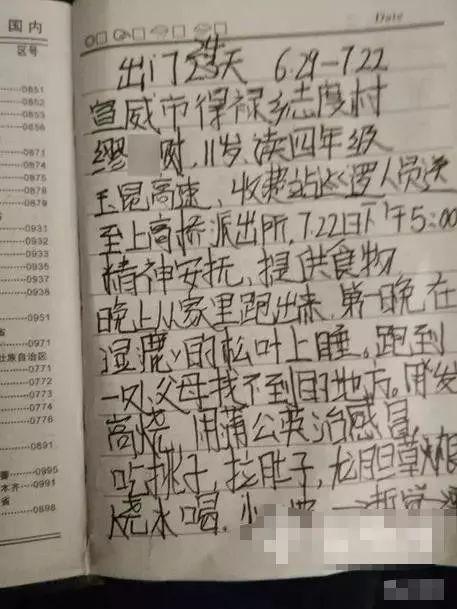 国内
区号
0851
0852
0853
0856
0871
0874
0875
0876
0878
0879
0931
0932
0933
0935
0937
0938
0951
省
0971
壮族自治区
0771
0772
0773
0774
0776
0891
0995
木齐 0991
省
0898
Date
出门23天 6.29-7.22
宣威市得禄乡志度村
缪 财, 11岁, 读四年级
玉昆高速, 收费站巡逻人员送
至上高桥派出所, 7.22日下午5:00
精神安抚, 提供食物
晚上从家里跑出来, 第一晚在
湿鹿鹿的松叶上睡。跑到
一处父母找不到的地方。用发
高烧, 用蒲公英治感冒,
吃桃子, 拉肚子, 龙胆草根
烧水喝.